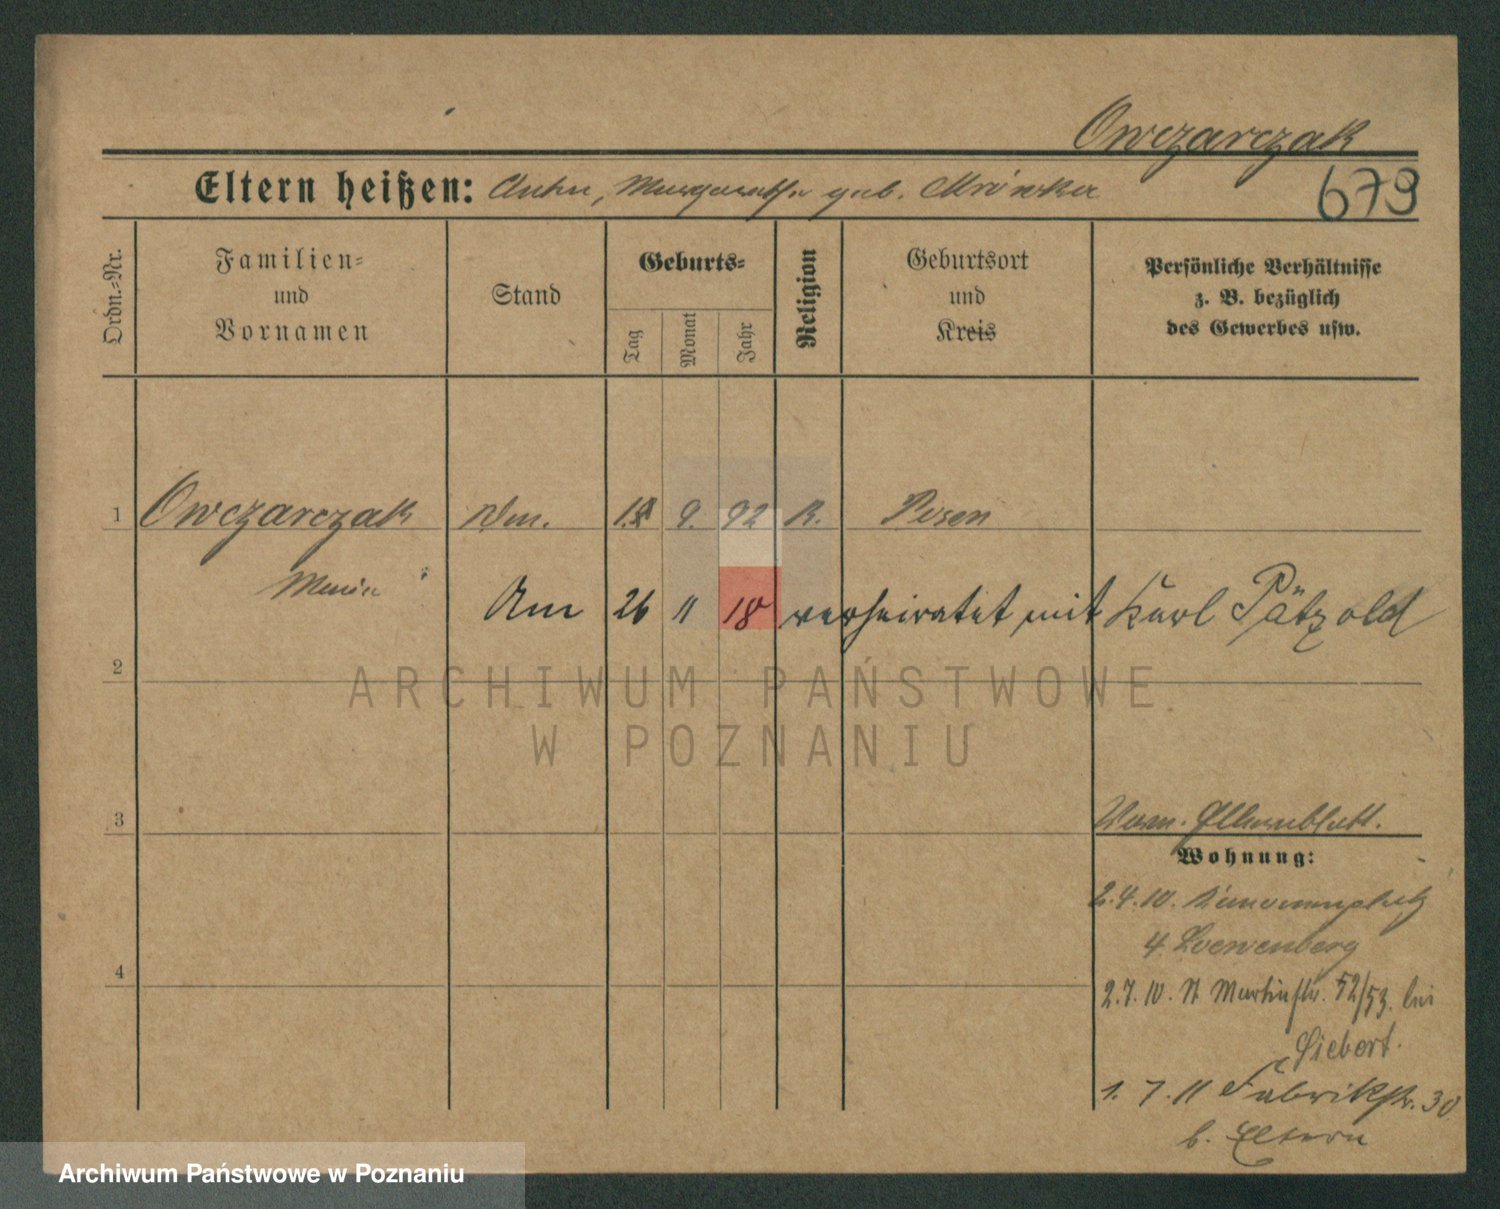 Owczarczak
Eltern heißen: Anton, Margaretha geb. Mrówka
679
Ordn.-Nr.
Familien-
und
Vornamen
Stand
Geburts-
Tag
Monat
Jahr
Religion
Geburtsort
und
Kreis
Persönliche Verhältnisse
z. B. bezüglich
des Gewerbes usw.
1 Owczarczak 9. 92 K. Posen
Maria
Am 26 11 18 verheiratet mit Karl Pätzold
2
3
Vom. Elternblatt.
Wohnung:
2.4.10.
4 Loewenberg
2.7.10. St Martinstr. 52/53. bei
Siebert.
1. 7. 11 Fabrikstr. 30
b. Eltern
4
ARCHIWUM PAŃSTWOWE
W POZNANIU
Archiwum Państwowe w Poznaniu